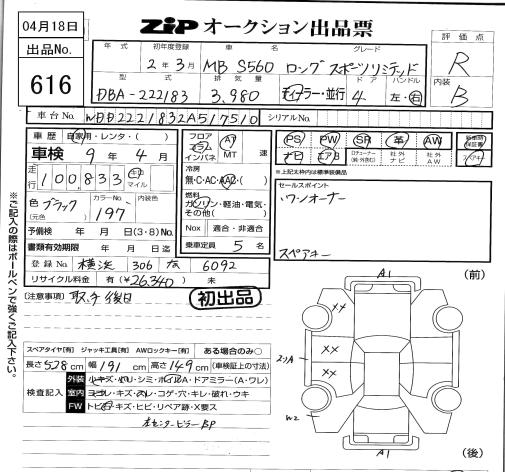 04月18日
ZIP オークション出品票
出品No.
616
評価点
R
内装
B
年式 初年度登録 車名 グレード
2年3月 MB S560 ロングスポーツリミテッド
型式 排気量 ドア ハンドル
DBA-222183 3,980 ディーラー・並行 4 左・右
車台No. WDD2221832A517510 シリアルNo.
車歴 自家用・レンタ・( )
車検 9年4月
走行 100,833 キロ マイル
色 ブラック (元色) カラーNo. 197 内装色
予備検 年 月 日(3・8)No.
書類有効期限 年 月 日迄
登録No. 横浜 306 6092
リサイクル料金 有(¥26,340) 未
フロア フラット インパネ AT MT 速
冷房 無・C・AC・AAC・( )
燃料 ガソリン・軽油・電気・その他( )
Nox 適合・非適合
乗車定員 5 名
PS PW SR 革 AW
ナビ エアB 社外ナビ 社外AW
スペアキー
*上記太枠内は標準装備品
セールスポイント
ワンオーナー
スペアキー
(注意事項) 取、予後日
初出品
※ご記入の際はボールペンで強くご記入下さい。
スペアタイヤ[有] ジャッキ工具[有] AWロックキー[有] ある場合のみ○
長さ 528 cm 幅 191 cm 高さ 149 cm (車検証上の寸法)
検査記入
外装 小キズ・凹リ・シミ・ホイルA・ドアミラー(A・ワレ)
室内 ヨゴレ・キズ・スレ・コゲ・穴・キレ・破れ・ウキ
FW トビ石・キズ・ヒビ・リペア跡・X要ス
左センターピラーBP
A1
(前)
XX
XX
XX
W2
A1
(後)